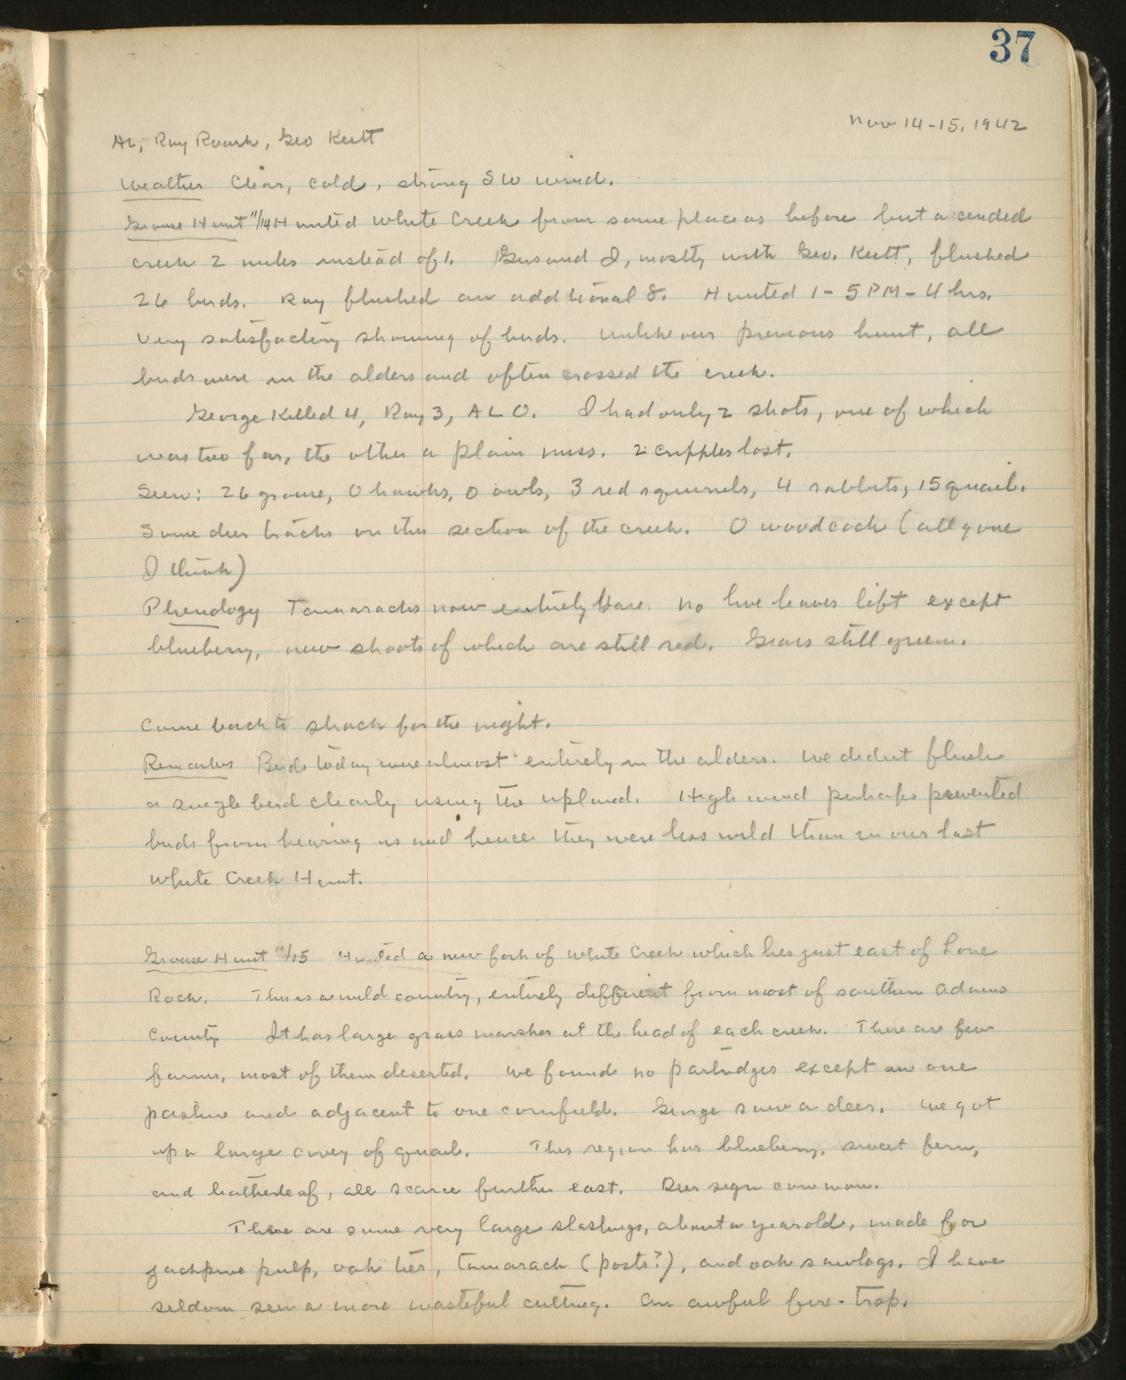 37
Nov 14-15, 1942
AL, Ray Roark, Geo Keitt
Weather Clear, cold, strong SW wind.
Grouse Hunt 11/14 Hunted White Creek from same place as before but ascended
creek 2 miles instead of 1. Gus and I, mostly with Geo. Keitt, flushed
26 birds. Ray flushed an additional 8. Hunted 1-5 PM - 4 hrs.
Very satisfactory showing of birds. Unlike our previous hunt, all
birds were in the alders and often crossed the creek.
George killed 4, Ray 3, AL 0. I had only 2 shots, one of which
was too far, the other a plain miss. 2 cripples lost.
Seen: 26 grouse, 0 hawks, 0 owls, 3 red squirrels, 4 rabbits, 15 quail.
Some deer tracks on this section of the creek. 0 woodcock (all gone
I think)
Phenology Tamaracks now entirely bare. No live leaves left except
blueberry, new shoots of which are still red. Grass still green.
Came back to shack for the night.
Remarks Birds today were almost entirely in the alders. We didnt flush
a single bird clearly using the upland. High wind perhaps prevented
birds from hearing us and hence they were less wild than in our last
White Creek Hunt.
Grouse Hunt 11/15 Hunted a new fork of White Creek which lies just east of Lone
Rock. This is a wild country, entirely different from most of southern Adams
County. It has large grass marshes at the head of each creek. There are few
farms, most of them deserted. We found no partridges except in one
pasture and adjacent to one cornfield. George saw a deer. We got
up a large covey of quail. This region has blueberry, sweet fern,
and leatherleaf, all scarce further east. Deer sign common.
There are some very large slashings, about a year old, made for
jackpine pulp, oak ties, tamarack (posts?), and oak sawlogs. I have
seldom seen a more wasteful cutting. An awful fire-trap.